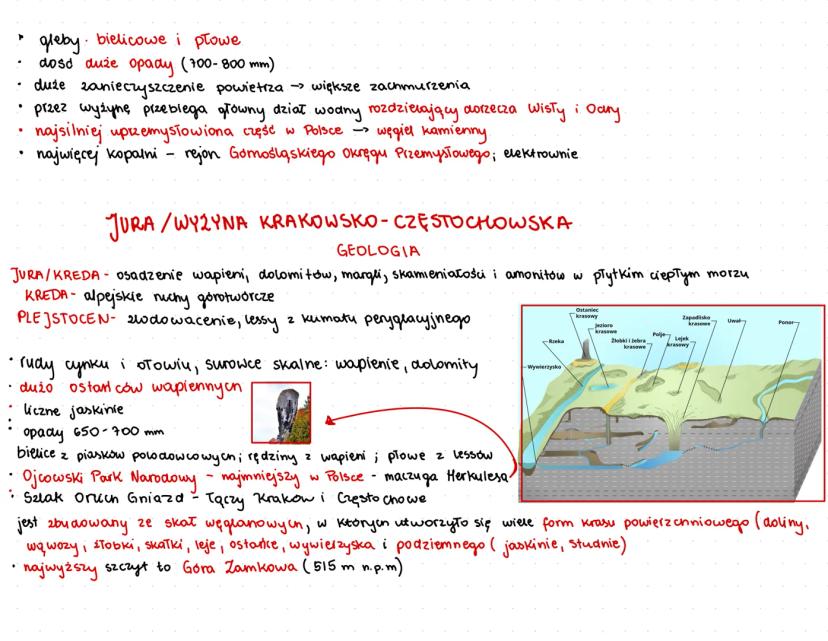 gleby · bielicowe i płowe
· dość duże opady (700-800 mm)
· duże zanieczyszczenie powietrza → większe zachmurzenia
· przez wyżynę przebiega główny dział wodny rozdzielający dorzecza Wisły i Odry
· najsilniej uprzemysłowiona część w Polsce → węgiel kamienny
· najwięcej kopalni – rejon Górnośląskiego Okręgu Przemysłowego; elektrownie
JURA/WYŻYNA KRAKOWSKO-CZĘSTOCHOWSKA
GEOLOGIA
JURA/KREDA - osadzenie wapieni, dolomitów, margli, skamieniałości i amonitów w płytkim ciepłym morzu
KREDA - alpejskie ruchy górotwórcze
PLEJSTOCEN - zlodowacenie, lessy z klimatu peryglacyjnego
· rudy cynku i ołowiu, surowce skalne: wapienie, dolomity
· dużo ostańców wapiennych
· liczne jaskinie
· opady 650-700 mm
bielice z piasków polodowcowych; rędziny z wapieni; płowe z lessów
· Ojcowski Park Narodowy - najmniejszy w Polsce - maczuga Herkulesa
· Szlak Orlich Gniazd - łączy Kraków i Częstochowe
jest zbudowany ze skał węglanowych, w których utworzyło się wiele form krasu powierzchniowego (doliny,
wąwozy, żłobki, skałki, leje, ostańce, wywierzyska i podziemnego (jaskinie, studnie)
· najwyższy szczyt to Góra Zamkowa (515 m n.p.m)
Ostaniec
krasowy
Jezioro
krasowe
Rzeka
Żłobi i żebra
krasowe
Polje
Lejek
krasowy
Zapadlisko
krasowe
Uwał
Ponor
Wywierzysko